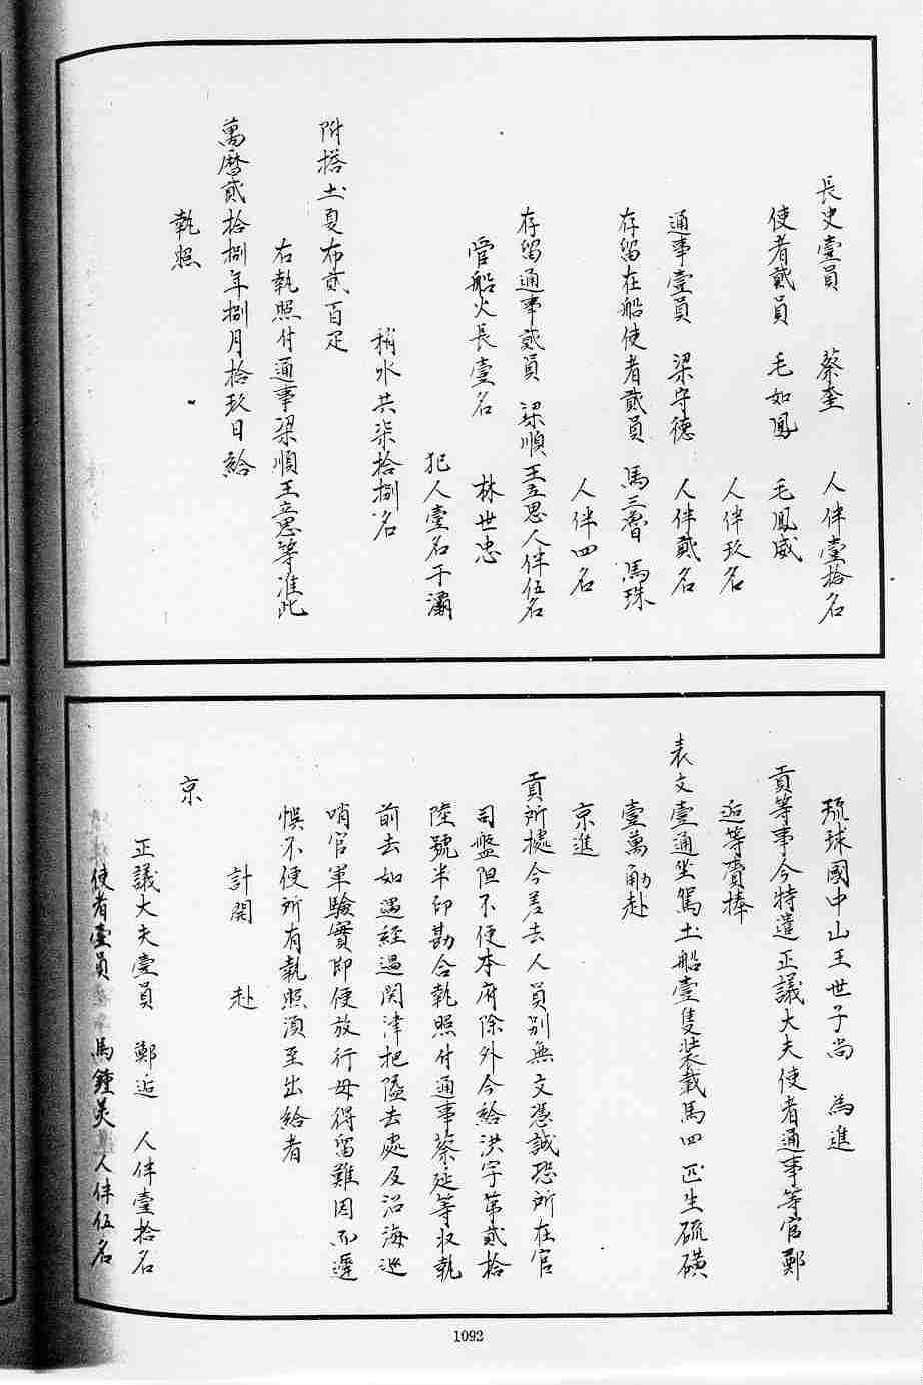 長史壹員　蔡奎　人伴壹拾名
使者貳員　毛如鳳　毛鳳威
人伴玖名
通事壹員　梁守德　人伴貳名
存留在船使者貳員　馬三魯　馬珠
人伴四名
存留通事貳員　梁順　王立思　人伴伍名
管船火長壹名　林世忠
犯人壹名于灞
稍水共柒拾捌名
附搭土夏布貳百疋
右執照付通事梁順王立思等准此
萬曆貳拾捌年捌月拾玖日給
執照
琉球國中山王世子尚　為進
貢等事今特遣正議大夫使者通事等官鄭
迵等賚捧
表文壹通坐駕土船壹隻裝載馬四匹生硫磺
壹萬觔赴
京進
貢所據今差去人員別無文憑誠恐所在官
司盤阻不便本府除外今給洪字第貳拾
陸號半印勘合執照付通事蔡延等收執
前去如遇經過関津把隘去處及沿海巡
哨官軍驗實即便放行毋得留難因而遲
悞不便所有執照須至出給者
計開　赴
京
正議大夫壹員　鄭迵　人伴壹拾名
使者壹員　馬鍾美　人伴伍名
1092